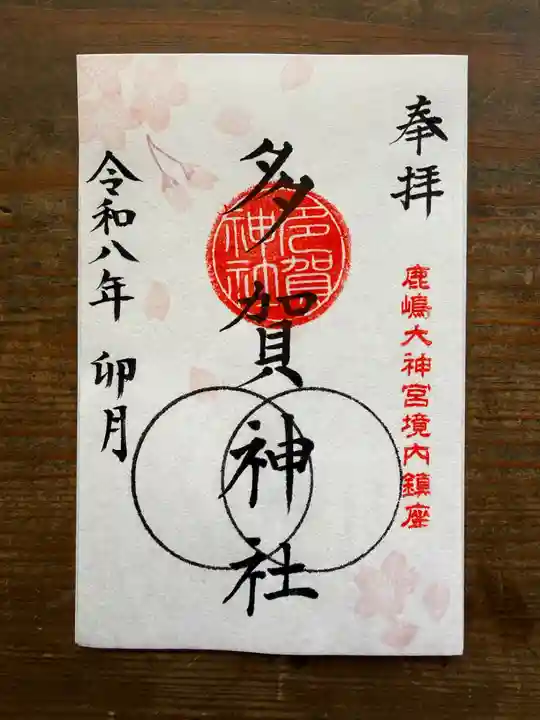 奉拝
鹿嶋大神宮境内鎮座
多賀神社
多賀神社
令和八年 卯月